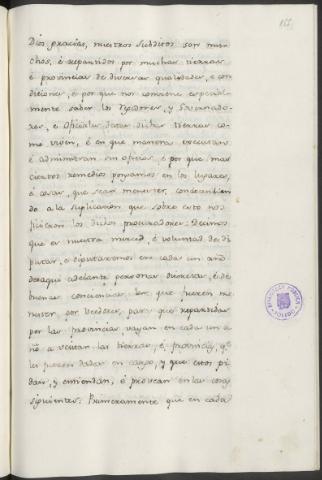 155
Dios gracias, nuestros subditos son mu-
chos, é repartidos por muchas tierras
é provincias de diversas qualidades, e con
diciones, é por que nos conviene especial-
mente saber los Regidores, y Governado-
res, é Oficiales destas dichas tierras co-
mo viven, é en que manera executan
é administran sus oficios, é por que mas
ciertos remedios pongamos en los lugares,
é cosas, que sean menester, condecendien
do a la suplicacion que sobre esto nos
ficieron los dichos procuradores: Decimos
que es nuestra merced, é voluntad de di
putar, e diputaremos en cada un año
de aqui adelante personas discretas, é de
buenas conciencias, las que fueren me
nester, por veedores, para que repartidas
por las provincias, vayan en cada un a
ño a visitar las tierras, é provincias, qe
les fueren dadas en cargo, y que estos pi
dan, y emiendan, é provean en las cosas
siguientes: Primeramente que en cada